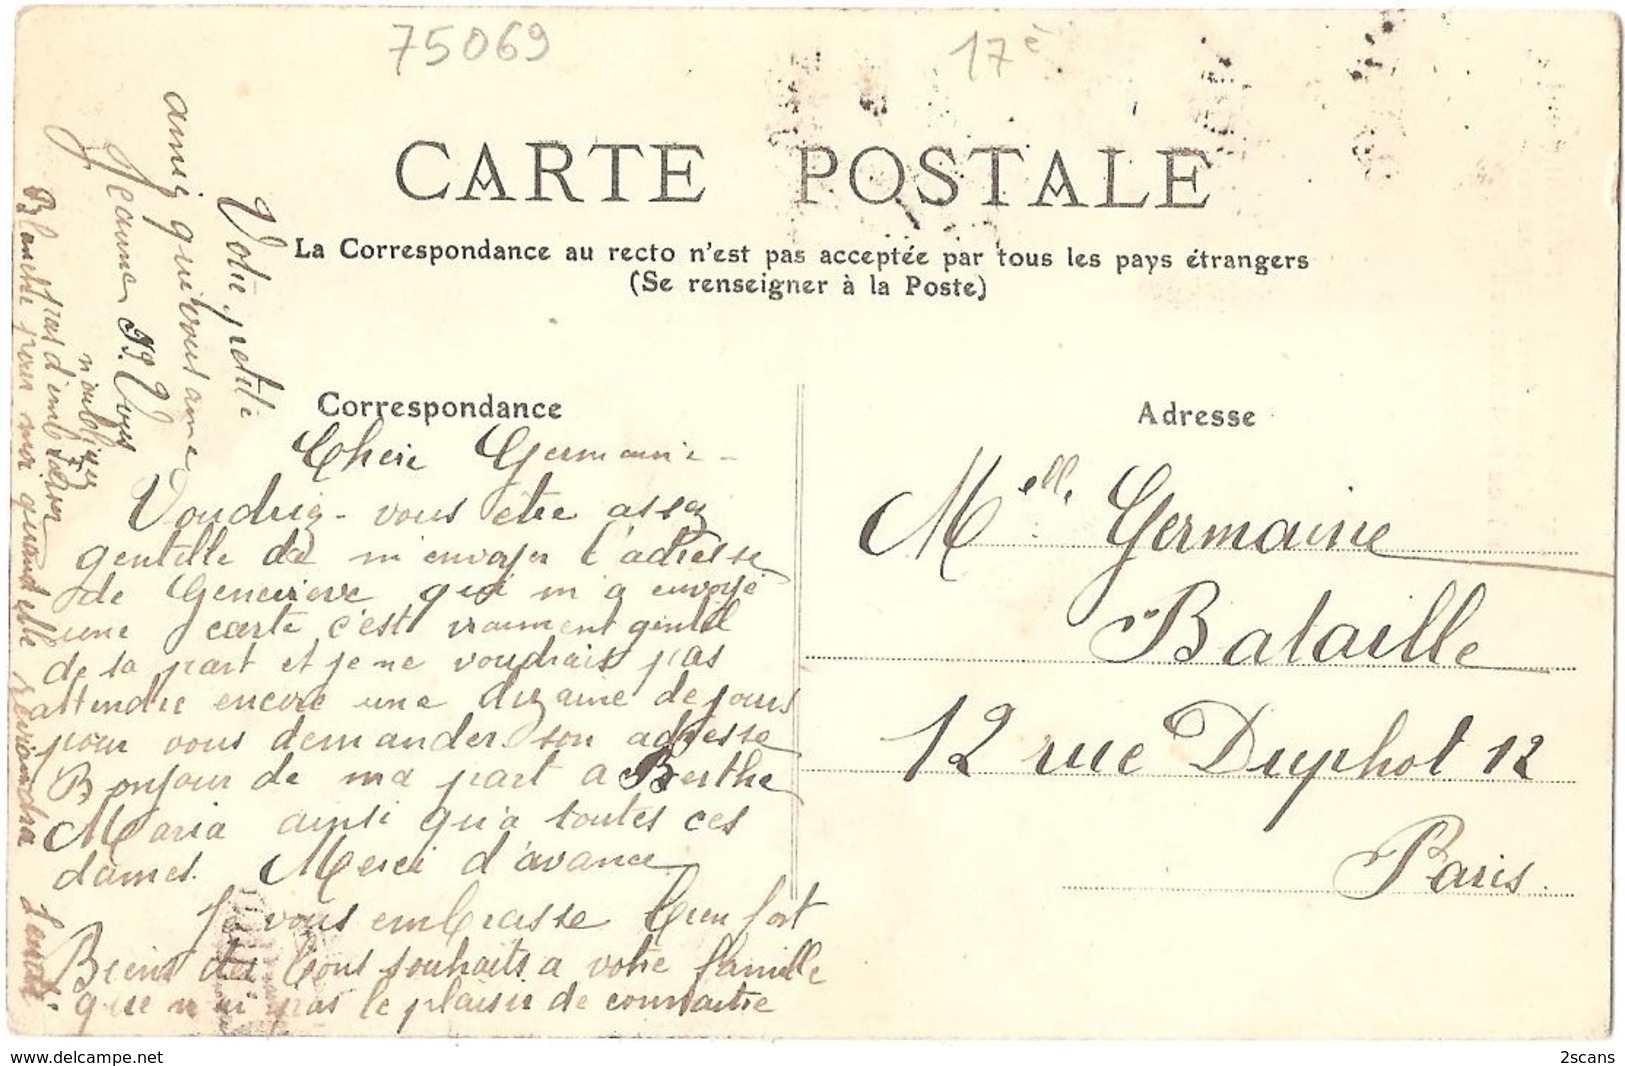 75069
17è
CARTE POSTALE
La Correspondance au recto n'est pas acceptée par tous les pays étrangers
(Se renseigner à la Poste)
Correspondance
Adresse
Chère Germaine -
Voudriez-vous être assez
gentille de m'envoyer l'adresse
de Geneviève qui m'a envoyé
une carte c'est vraiment gentil
de sa part et je ne voudrais pas
attendre encore une dizaine de jours
pour vous demander son adresse
Bonjour de ma part a Berthe
Maria ainsi qu'à toutes ces
dames. Merci d'avance
Je vous embrasse bien fort
Biens des bons souhaits a votre famille
que n'ai pas le plaisir de connaitre
Votre petite
amie qui vous aime
Jeanne
P.S. Vous
n'oublierez
pas d'embrasser
Blanche pour moi quand elle reviendra
Melle Germaine
Bataille
12 rue Duphot 12
Paris.
delcampe.net
2scans